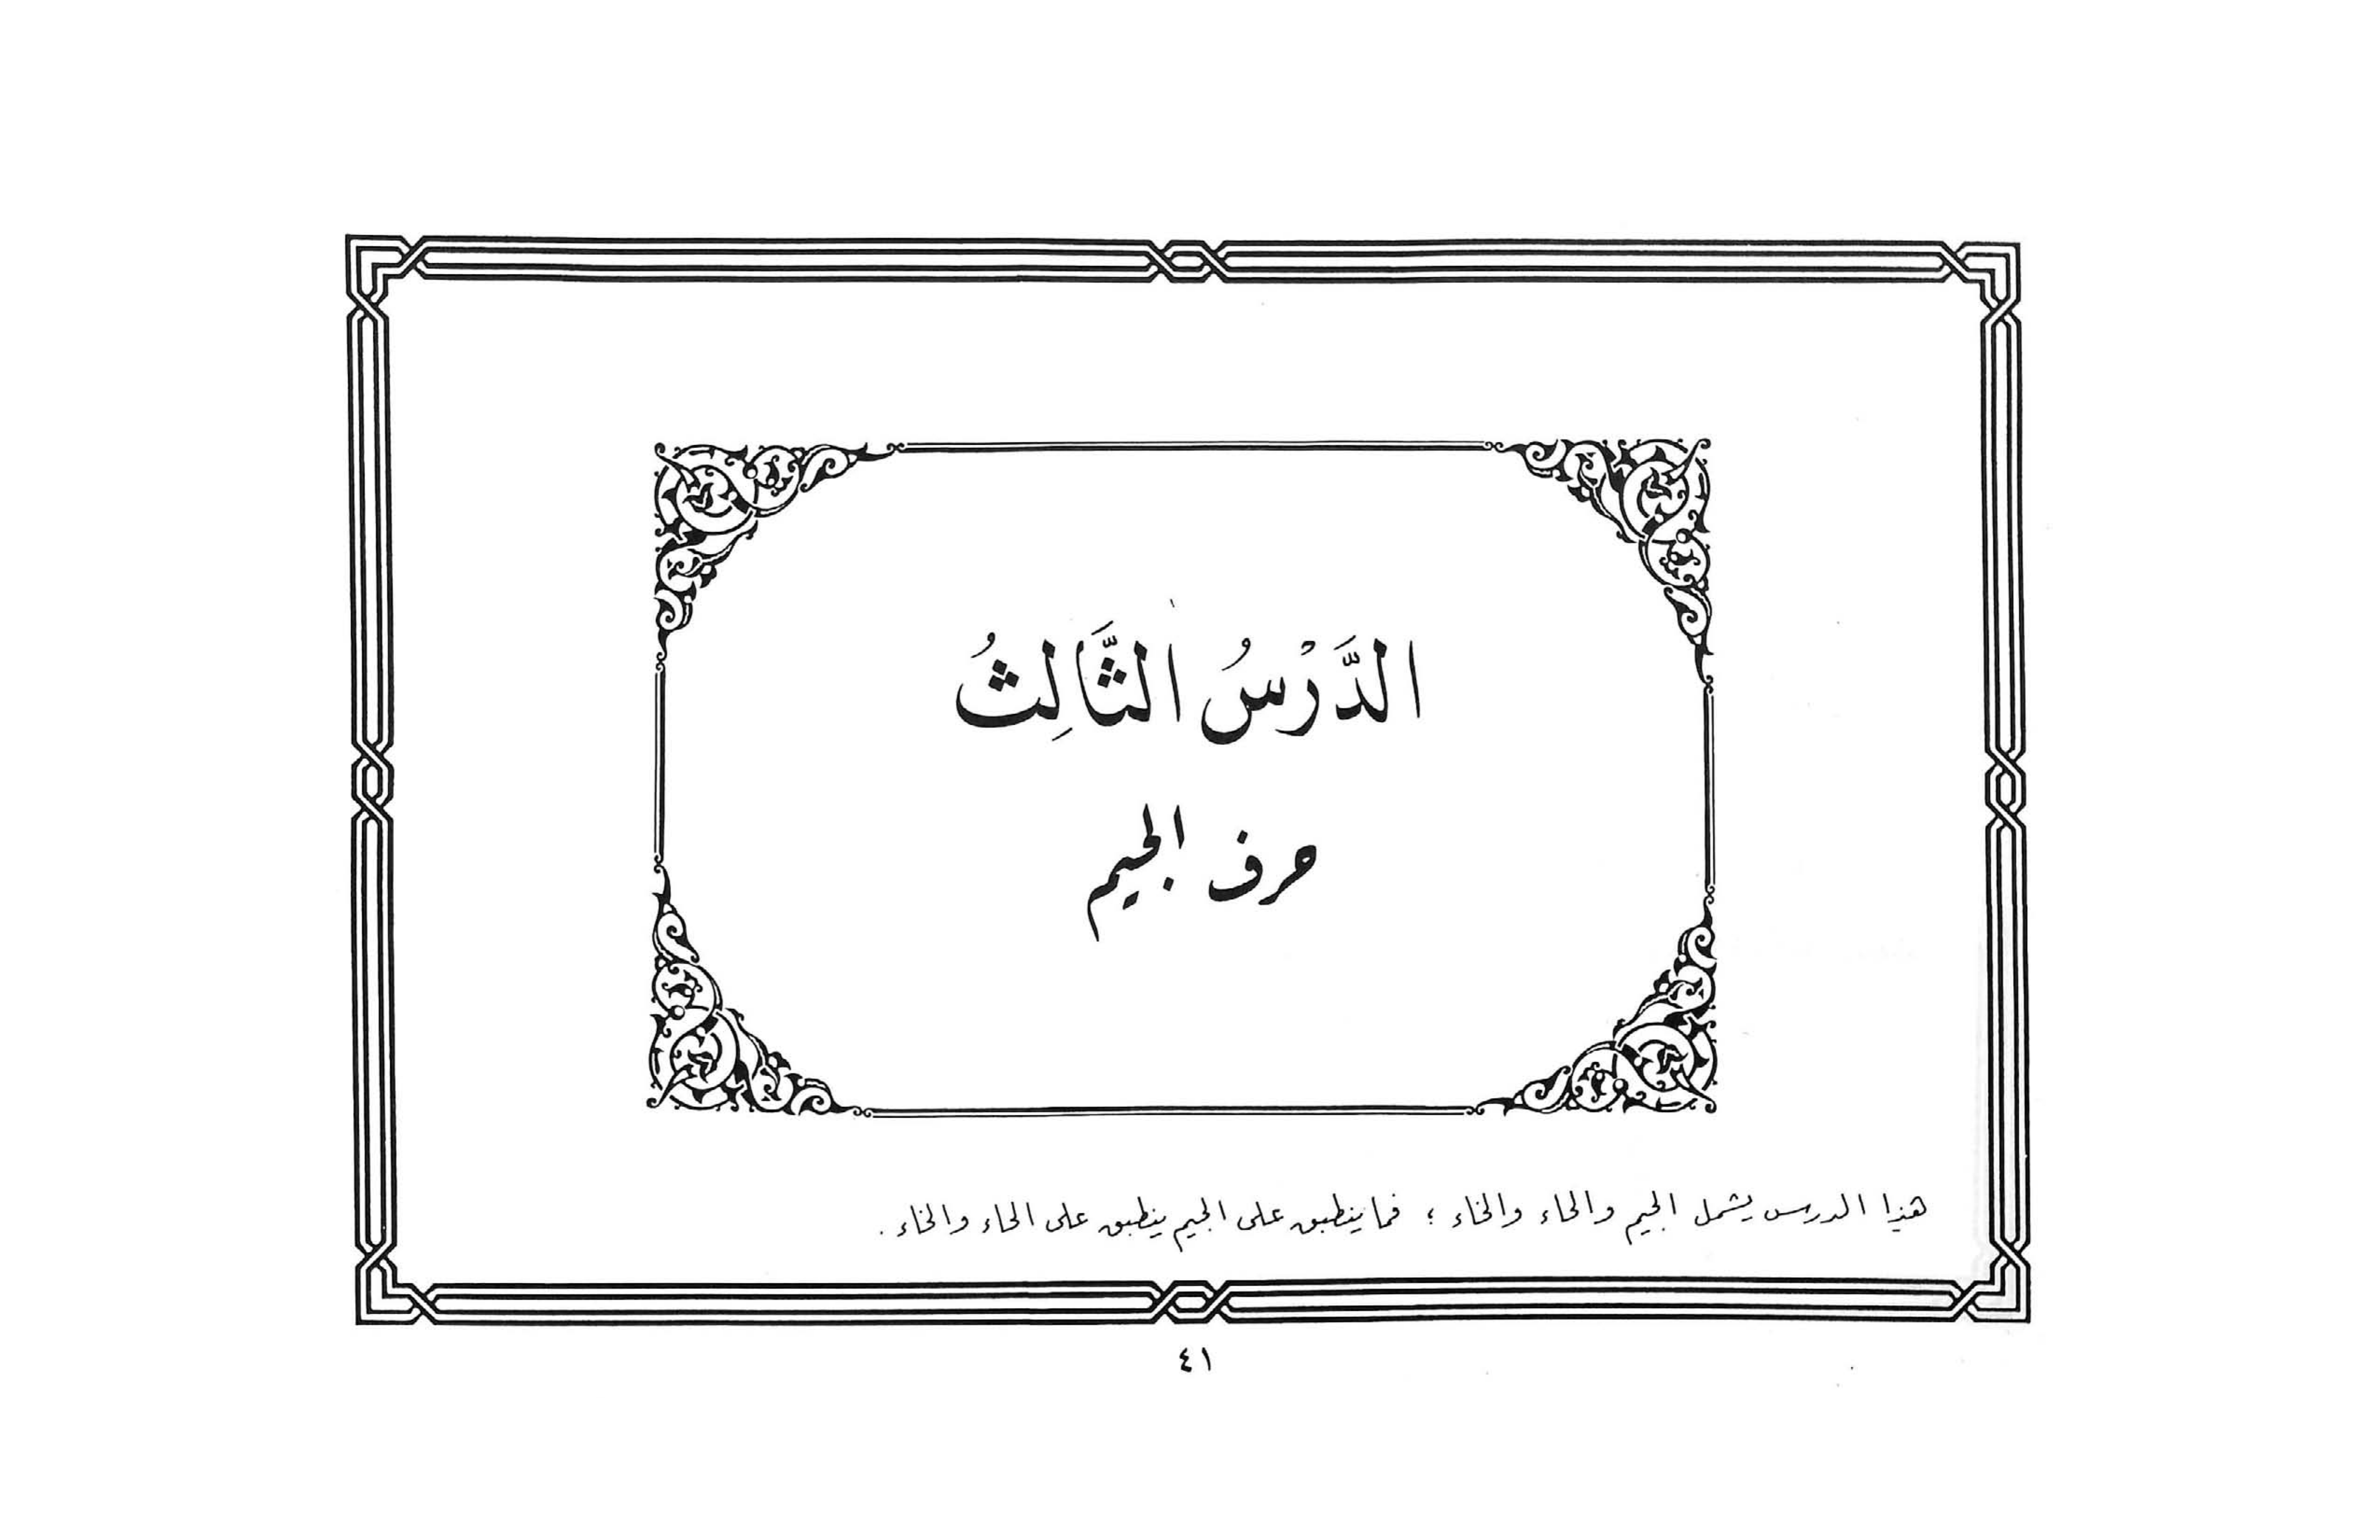 الدَّرْسُ الثَّالِثُ
حرف الجيم
هذا الدرس يشمل الجيم والحاء والخاء ؛ فما ينطبق على الجيم ينطبق على الحاء والخاء .
٤١